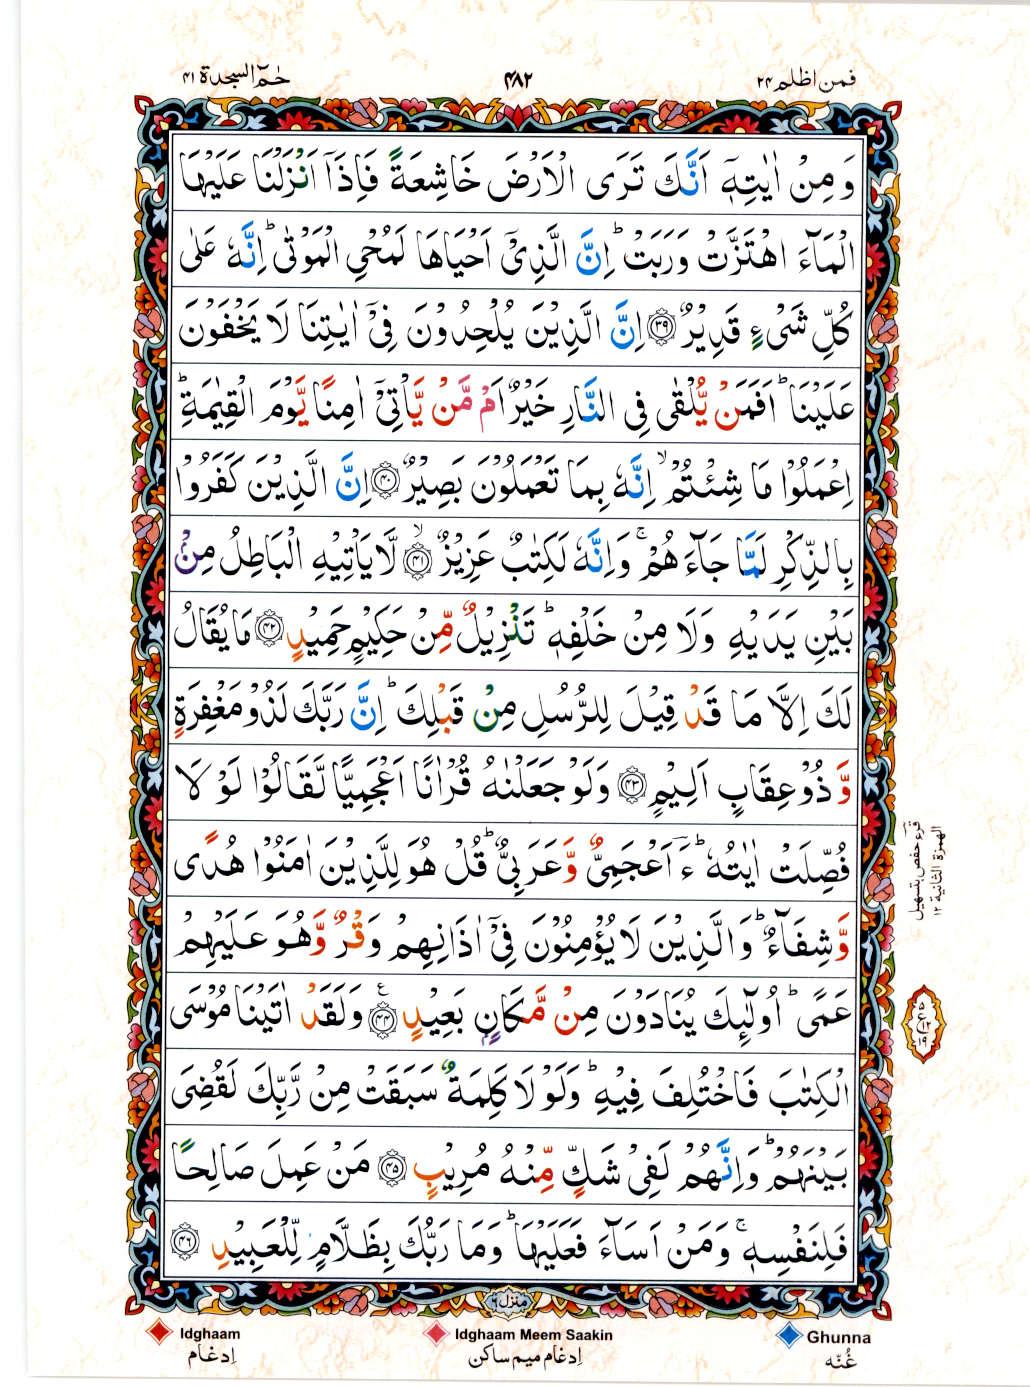 فمن اظلم ٢٤
٤٨٢
حٰمٓ السجدة ٤١
وَمِنْ اٰيٰتِهٖۤ اَنَّكَ تَرَى الْاَرْضَ خَاشِعَةً فَاِذَاۤ اَنْزَلْنَا عَلَيْهَا
الْمَآءَ اهْتَزَّتْ وَرَبَتْ ؕ اِنَّ الَّذِيْۤ اَحْيَاهَا لَمُحْيِ الْمَوْتٰى ؕ اِنَّهٗ عَلٰى
كُلِّ شَيْءٍ قَدِيْرٌ ﴿٣٩﴾ اِنَّ الَّذِيْنَ يُلْحِدُوْنَ فِيْۤ اٰيٰتِنَا لَا يَخْفَوْنَ
عَلَيْنَا ؕ اَفَمَنْ يُّلْقٰى فِي النَّارِ خَيْرٌ اَمْ مَّنْ يَّاْتِيْۤ اٰمِنًا يَّوْمَ الْقِيٰمَةِ ؕ
اِعْمَلُوْا مَا شِئْتُمْ ۙ اِنَّهٗ بِمَا تَعْمَلُوْنَ بَصِيْرٌ ﴿٤٠﴾ اِنَّ الَّذِيْنَ كَفَرُوْا
بِالذِّكْرِ لَمَّا جَآءَهُمْ ۚ وَاِنَّهٗ لَكِتٰبٌ عَزِيْزٌ ﴿٤١﴾ ۙ لَّا يَاْتِيْهِ الْبَاطِلُ مِنْۢ
بَيْنِ يَدَيْهِ وَلَا مِنْ خَلْفِهٖ ؕ تَنْزِيْلٌ مِّنْ حَكِيْمٍ حَمِيْدٍ ﴿٤٢﴾ مَا يُقَالُ
لَكَ اِلَّا مَا قَدْ قِيْلَ لِلرُّسُلِ مِنْ قَبْلِكَ ؕ اِنَّ رَبَّكَ لَذُوْ مَغْفِرَةٍ
وَّذُوْ عِقَابٍ اَلِيْمٍ ﴿٤٣﴾ وَلَوْ جَعَلْنٰهُ قُرْاٰنًا اَعْجَمِيًّا لَّقَالُوْا لَوْ لَا
فُصِّلَتْ اٰيٰتُهٗ ؕ ءَاَعْجَمِيٌّ وَّعَرَبِيٌّ ؕ قُلْ هُوَ لِلَّذِيْنَ اٰمَنُوْا هُدًى
وَّشِفَآءٌ ؕ وَالَّذِيْنَ لَا يُؤْمِنُوْنَ فِيْۤ اٰذَانِهِمْ وَقْرٌ وَّهُوَ عَلَيْهِمْ
عَمًى ؕ اُولٰٓئِكَ يُنَادَوْنَ مِنْ مَّكَانٍۭ بَعِيْدٍ ﴿٤٤﴾ ع وَلَقَدْ اٰتَيْنَا مُوْسَى
الْكِتٰبَ فَاخْتُلِفَ فِيْهِ ؕ وَلَوْ لَا كَلِمَةٌ سَبَقَتْ مِنْ رَّبِّكَ لَقُضِيَ
بَيْنَهُمْ ؕ وَاِنَّهُمْ لَفِيْ شَكٍّ مِّنْهُ مُرِيْبٍ ﴿٤٥﴾ مَنْ عَمِلَ صَالِحًا
فَلِنَفْسِهٖ ۚ وَمَنْ اَسَآءَ فَعَلَيْهَا ؕ وَمَا رَبُّكَ بِظَلَّامٍ لِّلْعَبِيْدِ ﴿٤٦﴾
قرء حفص بتسهيل
الهمزة الثانية ١٢
منزل ٦
Idghaam
اِدغام
Idghaam Meem Saakin
اِدغام ميم ساكن
Ghunna
غُنّه